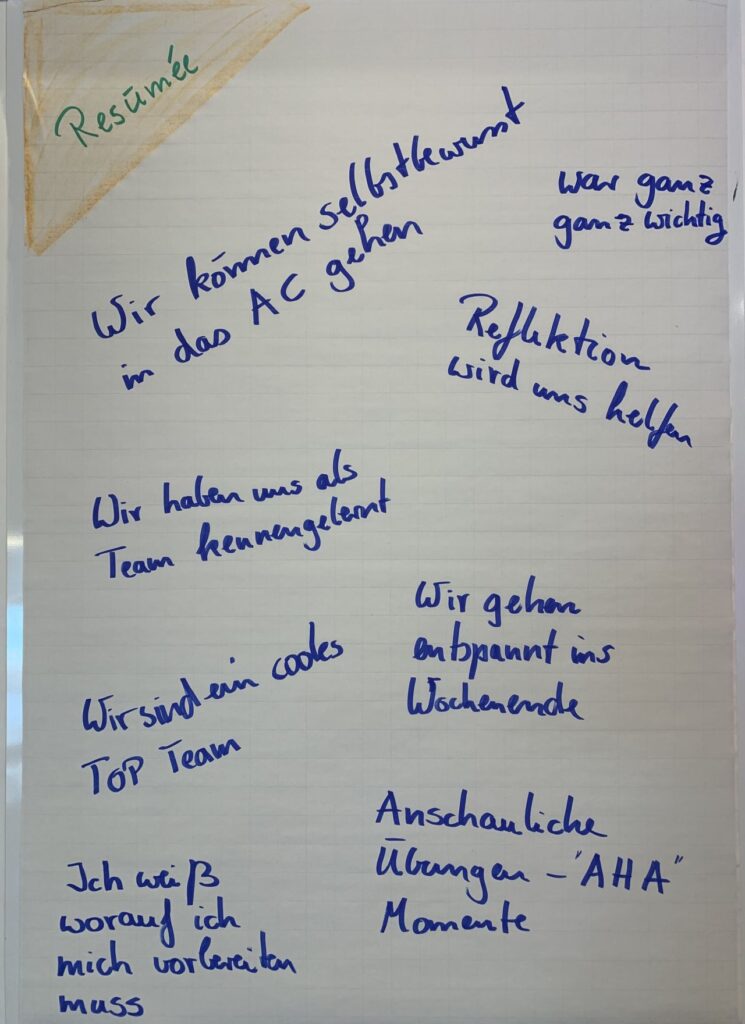 Resümée
Wir können selbstbewusst
in das AC gehen
war ganz
ganz wichtig
Reflektion
wird uns helfen
Wir haben uns als
Team kennengelernt
Wir gehen
entspannt ins
Wochenende
Wir sind ein cooles
TOP Team
Anschauliche
Übungen - "AHA"
Momente
Ich weiß
worauf ich
mich vorbereiten
muss